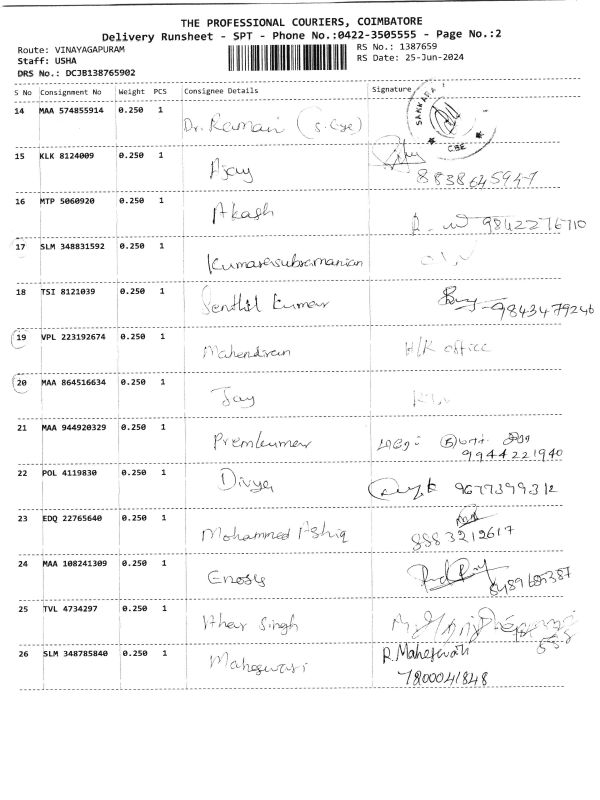 THE PROFESSIONAL COURIERS, COIMBATORE
Delivery Runsheet - SPT - Phone No.:0422-3505555 - Page No.:2
Route: VINAYAGAPURAM RS No.: 1387659
Staff: USHA RS Date: 25-Jun-2024
DRS No.: DCJB138765902
S No Consignment No Weight PCS Consignee Details Signature
14 MAA 574855914 0.250 1 Dr. Raman (S. Eye) SANKARA CBE
15 KLK 8124009 0.250 1 Ajay
16 MTP 5060920 0.250 1 Akash 9842276710
17 SLM 348831592 0.250 1 Kumarasubramanian
18 TSI 8121039 0.250 1 Senthil Kumar 9843479246
19 VPL 223192674 0.250 1 Mahendiran H/R office
20 MAA 864516634 0.250 1 Jay
21 MAA 944920329 0.250 1 Premkumar
9944221940
22 POL 4119830 0.250 1 Divya 9677399312
23 EDQ 22765640 0.250 1 Mohammed Ashiq 8883212617
24 MAA 108241309 0.250 1
25 TVL 4734297 0.250 1 Singh
26 SLM 348785840 0.250 1 Maheswari R. Maheswari
7200041848